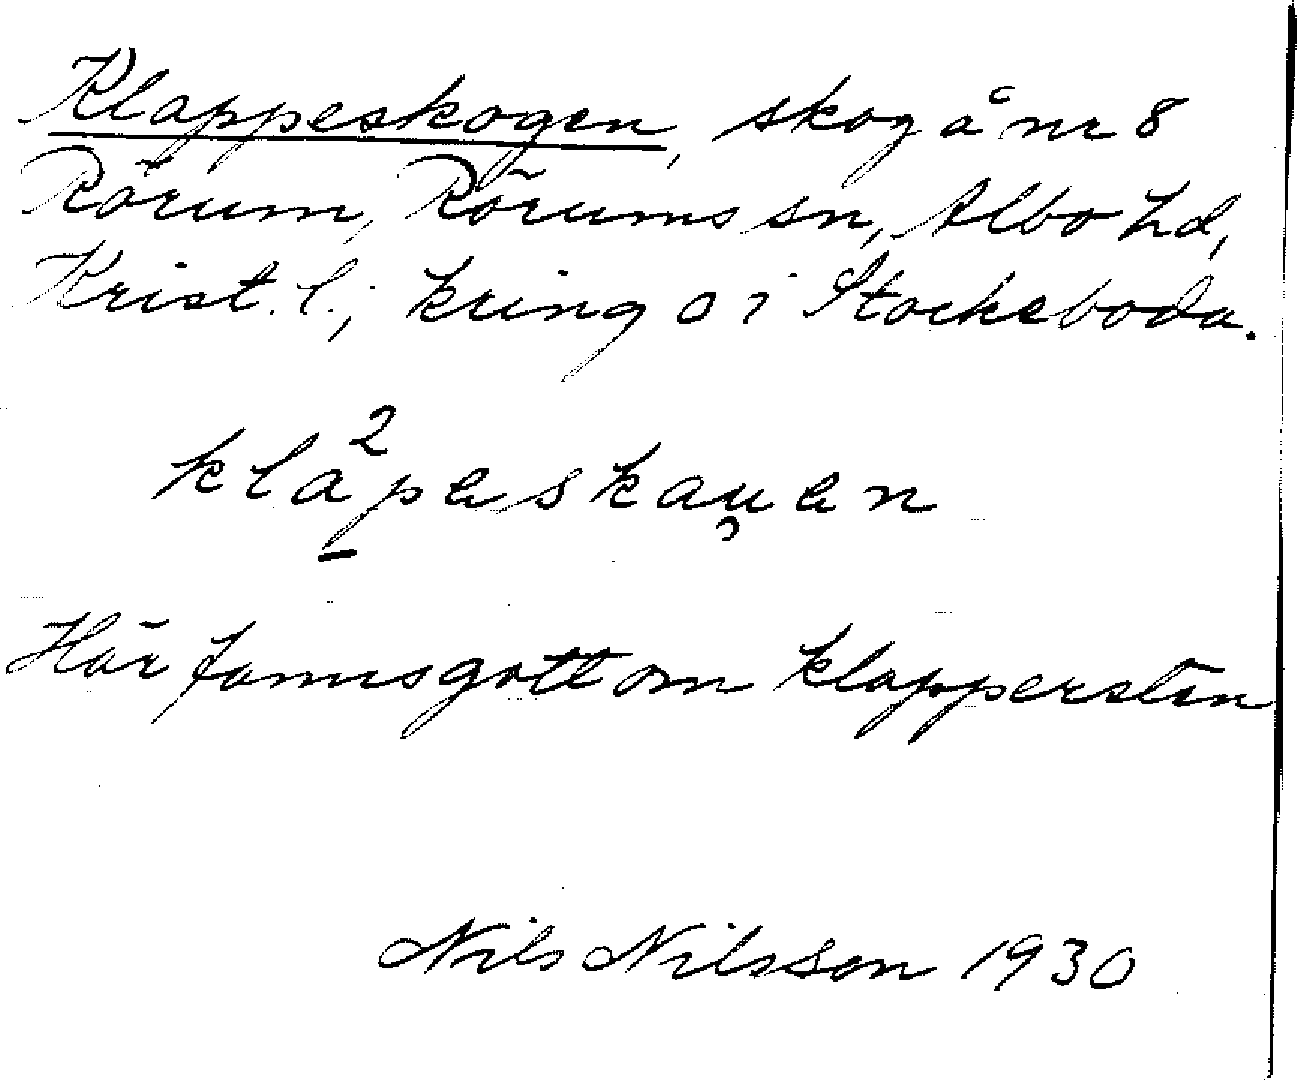 Klappeskogen, skog å nr 8
Rörum, Rörums sn, Albo hd,
Krist. l.; kring o i Stockeboda.
kla²peskau̯en
Här fanns gott om klappersten
Nils Nilsson 1930